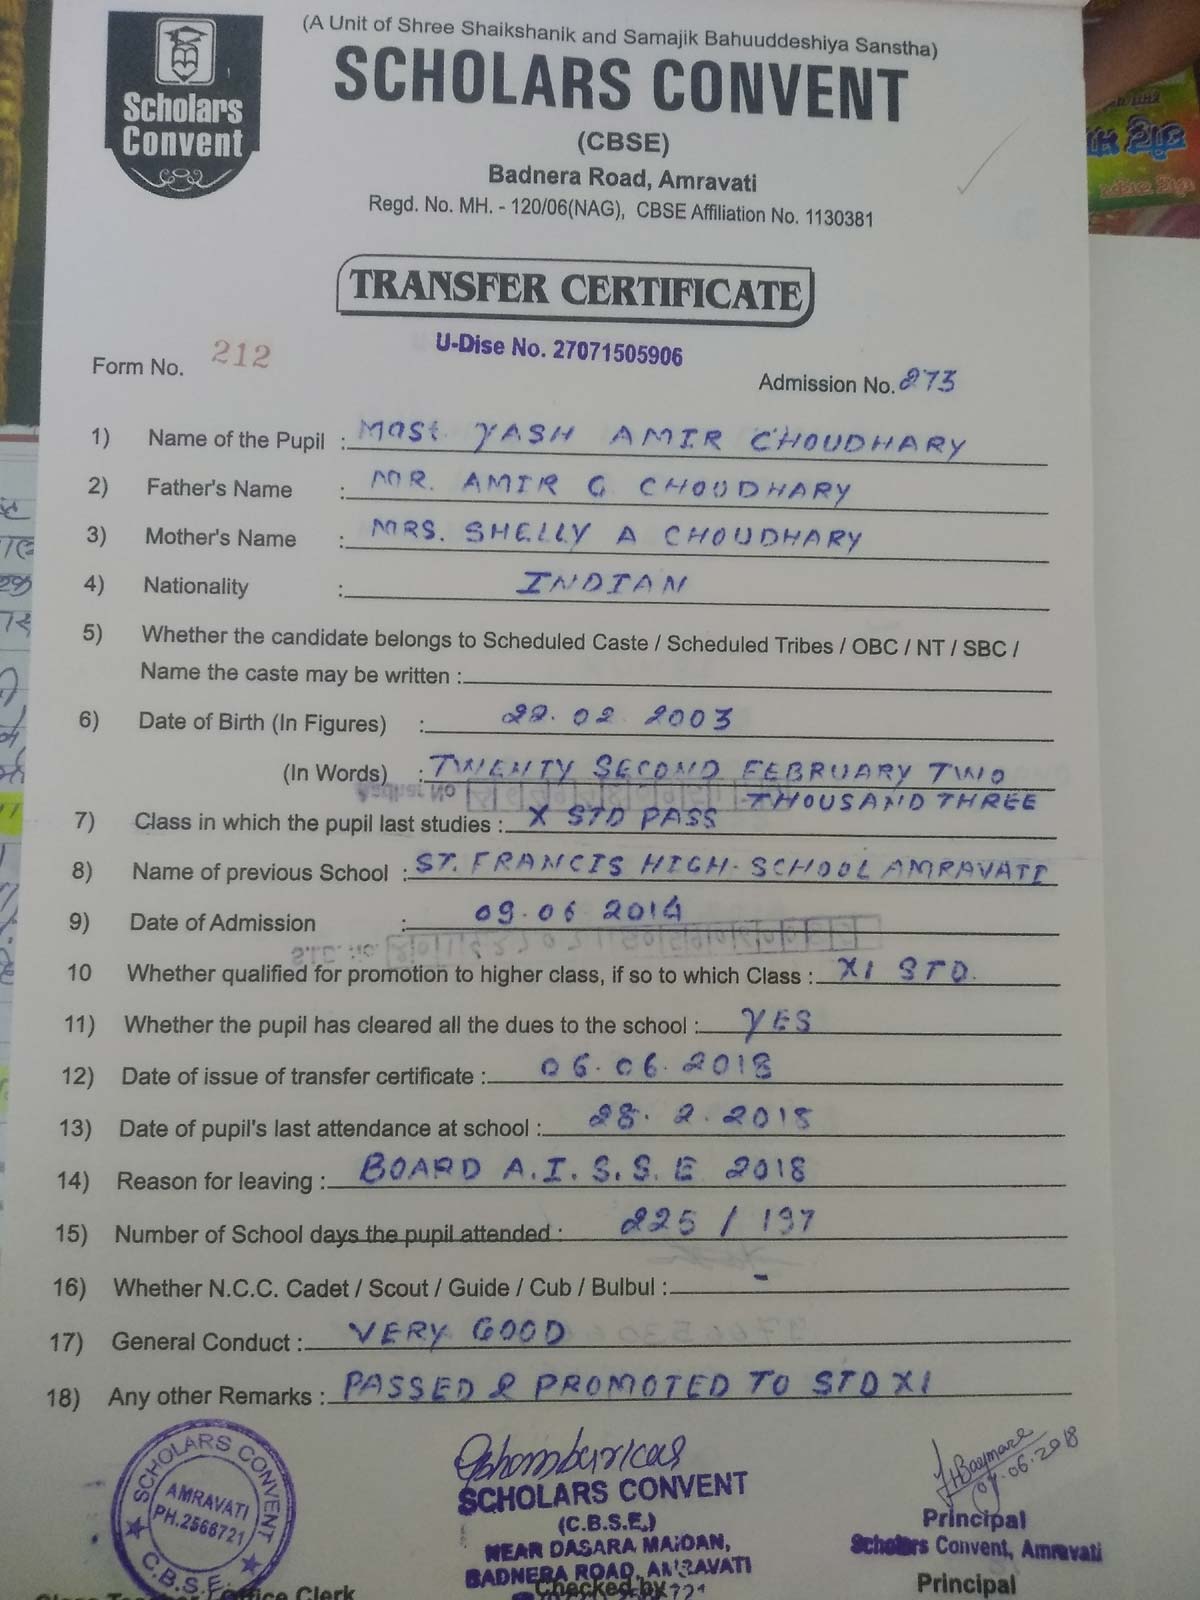 (A Unit of Shree Shaikshanik and Samajik Bahuuddeshiya Sanstha)
SCHOLARS CONVENT
Scholars
Convent
(CBSE)
Badnera Road, Amravati
Regd. No. MH. - 120/06(NAG), CBSE Affiliation No. 1130381
TRANSFER CERTIFICATE
U-Dise No. 27071505906
Form No. 212
Admission No. 273
1) Name of the Pupil : Mast YASH AMIR CHOUDHARY
2) Father's Name : MR. AMIR G CHOUDHARY
3) Mother's Name : MRS. SHELLY A CHOUDHARY
4) Nationality : INDIAN
5) Whether the candidate belongs to Scheduled Caste / Scheduled Tribes / OBC / NT / SBC /
Name the caste may be written :
6) Date of Birth (In Figures) : 22.02 2003
(In Words) : TWENTY SECOND FEBRUARY TWO
THOUSAND THREE
7) Class in which the pupil last studies : X STD PASS
8) Name of previous School : ST. FRANCIS HIGH-SCHOOL AMRAVATI
9) Date of Admission : 09.06 2014
10 Whether qualified for promotion to higher class, if so to which Class : XI STD.
11) Whether the pupil has cleared all the dues to the school : YES
12) Date of issue of transfer certificate : 06.06.2018
13) Date of pupil's last attendance at school : 28. 2. 2018
14) Reason for leaving : BOARD A.I.S.S.E 2018
15) Number of School days the pupil attended : 225 / 197
16) Whether N.C.C. Cadet / Scout / Guide / Cub / Bulbul : -
17) General Conduct : VERY GOOD
18) Any other Remarks : PASSED & PROMOTED TO STD XI
SCHOLARS CONVENT
AMRAVATI
PH.2566721
C.B.S.E.
SCHOLARS CONVENT
(C.B.S.E.)
NEAR DASARA MAIDAN,
BADNERA ROAD, AMRAVATI
Checked by
06.2018
Principal
Scholars Convent, Amravati
Principal
Office Clerk